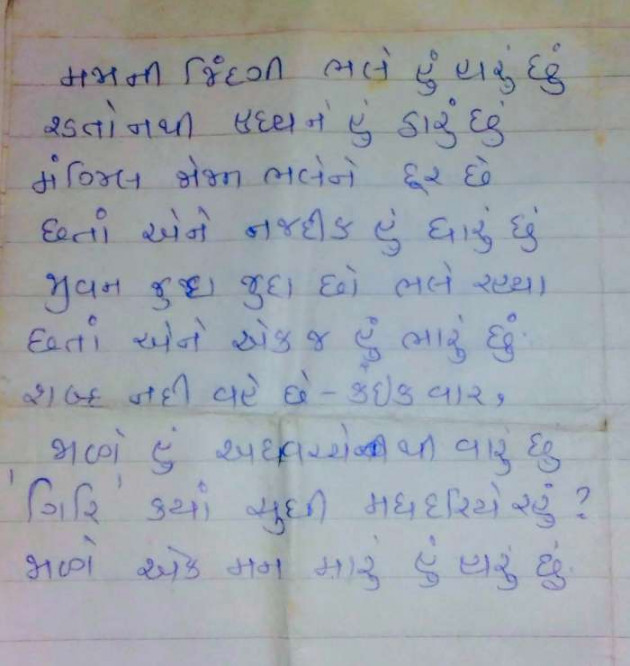 મજાની જિંદગી ભલે હું હારું છું
રડતો નથી હૃદયને હું ઠારું છું
મંઝિલ જોજન ભલેને દૂર છે
છતાં એને નજદીક હું ધારું છું
જીવન જુદા જુદા છો ભલે રહ્યા
છતાં એને એક જ હું ભારું છું.
શબ્દ નદી વહે છે - કંઈક વાર,
જાળો હું અધવચ્ચેથી વારું છું
'ગિરિ' ક્યાં સુધી મધદરિયે રહું?
જાળો એક મન મારું હું હારું છું.